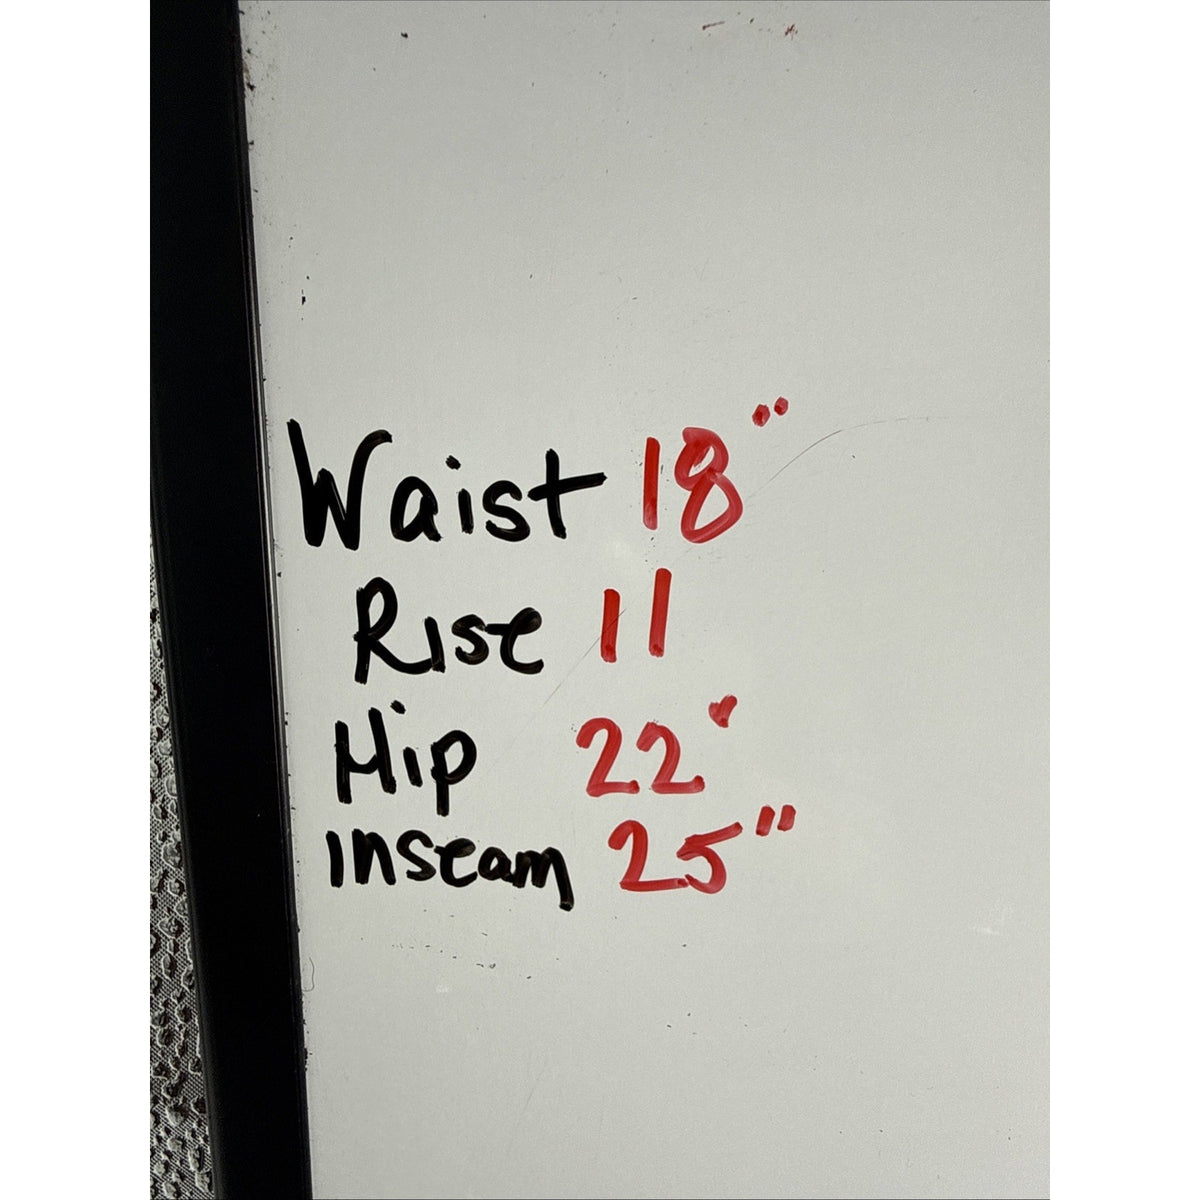 Waist 18"
Rise 11
Hip 22"
Inseam 25"